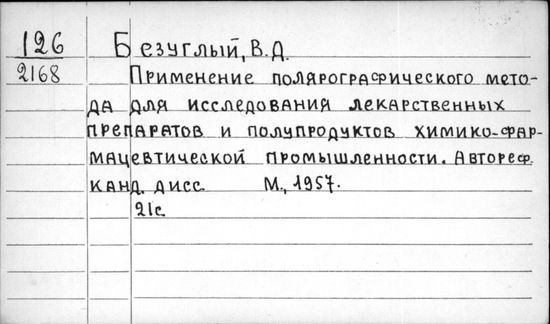 126 Безуглый, В.Д.
2168 Применение полярографического мето-
да для исследования лекарственных
препаратов и полупродуктов химико-фар-
мацевтической промышленности. Автореф.
канд. дисс. М., 1957.
21с.